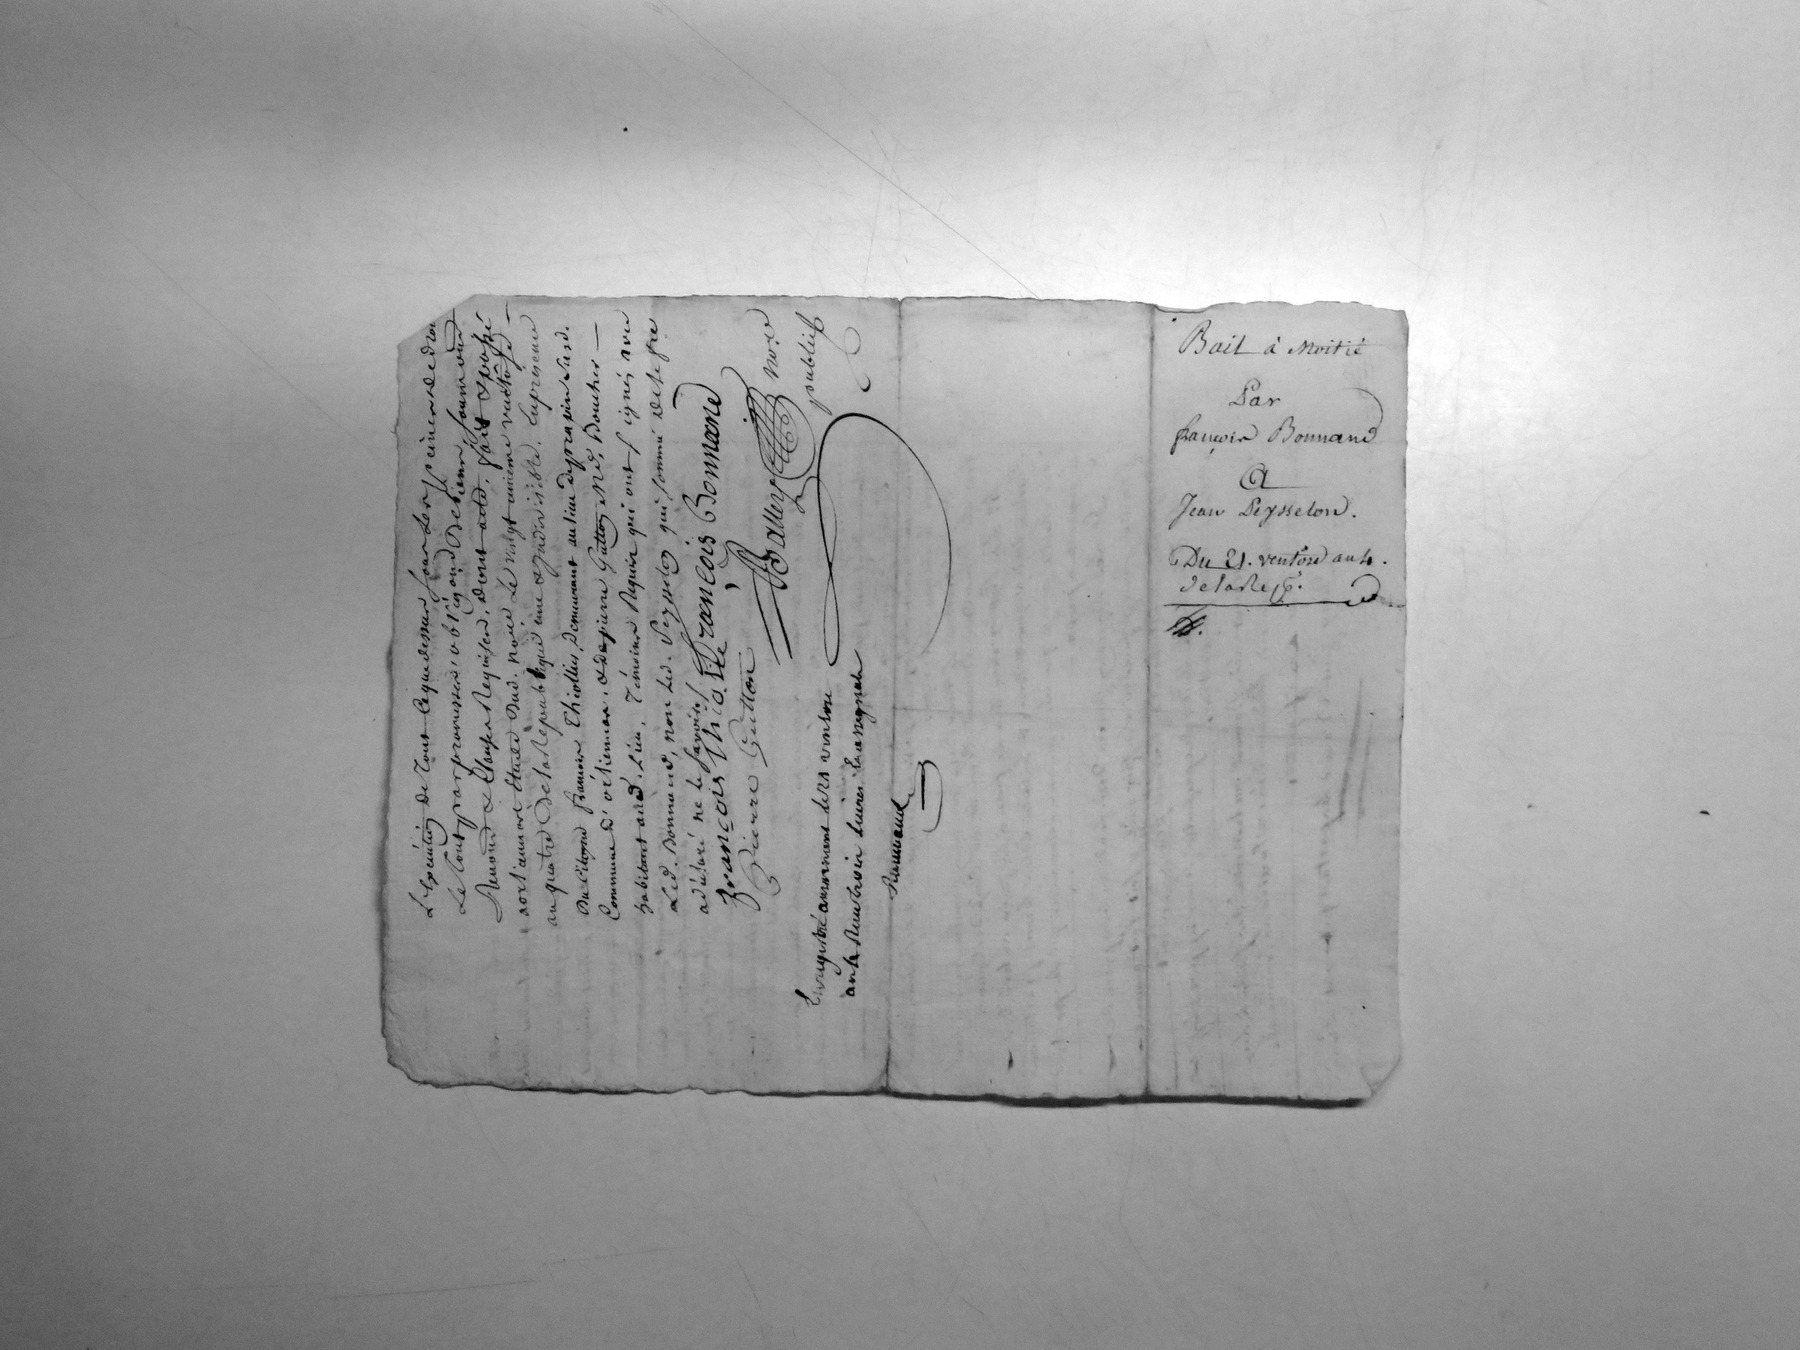 L'Exécution de Tout Ce que dessus sous les peines de droit
Le tout par promesses, obligaõn des biens, soumissions
Renonçõn & Clauses Requises, dont acte, fait & passé
notre Etude sud. Lieu, Le vingt unieme ventôse
an quatre de la Republique une & indivisible. En presence
Du Citoyen francois Thiollier, demeurant au lieu du
Commune d' & de pierre Gutton Md. Boucher
habitant aud. Lieu. Témoins Requis qui ont signés avec
Led. Bonnand, non Led. Peysselon qui sommé de le fre
a déclaré ne le savoir /.
françois thiollie françois Bonnand
Pierre Gutton
Balley no.re
public
Enregistré a le 21 ventose
an 4 Reçu trois livres En assignats
Bail à Moitié
Par
françois Bonnand
A
Jean Peysselon.
Du 21. ventose an 4.
de la Rep.